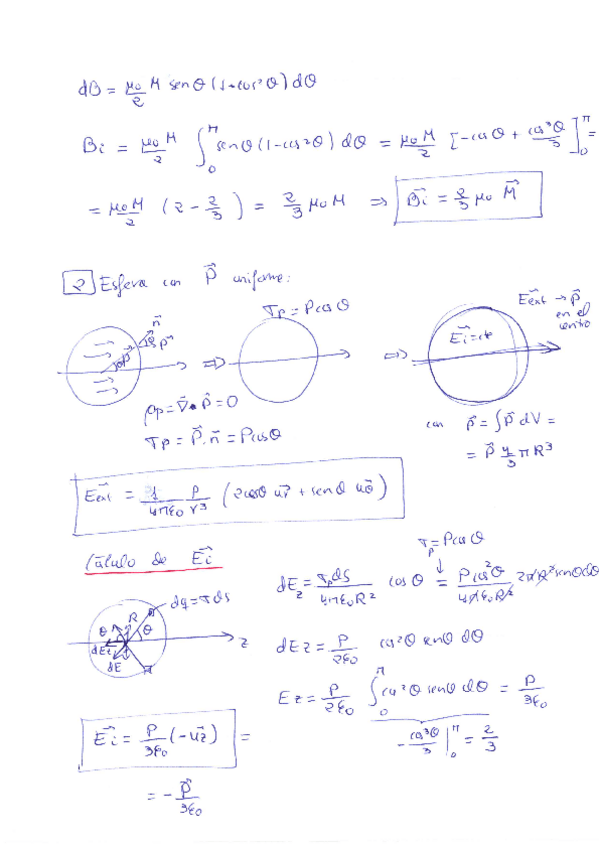 dB = μ₀M/2 senθ (1-cos²θ) dθ
Bi = μ₀M/2 ∫₀^π senθ (1-cos²θ) dθ = μ₀M/2 [-cosθ + cos³θ/3]₀^π =
= μ₀M/2 (2 - 2/3) = 2/3 μ₀M ⇒ B⃗i = 2/3 μ₀ M⃗
2 Esfera con P⃗ uniforme:
σp = P cosθ
E⃗ext → p⃗
en el
centro
n⃗
θ P⃗
E⃗i = cte
⇒
⇒
ρp = ∇⃗•P⃗ = 0
σp = P⃗.n⃗ = Pcosθ
con p⃗ = ∫P⃗ dV =
= P⃗ 4/3 πR³
E⃗ext = 1/4πε₀ p/r³ (2cosθ u⃗r + senθ u⃗θ)
σp = Pcosθ
Cálculo de E⃗i
dEz = σp ds/4πε₀R² cosθ = Pcos²θ/4πε₀R² 2πR² senθdθ
dq = σ ds
R
θ θ
z
dEz
dE
dEz = P/2ε₀ cos²θ senθ dθ
Ez = P/2ε₀ ∫₀^π cos²θ senθ dθ = P/3ε₀
-cos³θ/3 |₀^π = 2/3
E⃗i = P/3ε₀ (-u⃗z) =
= - P⃗/3ε₀